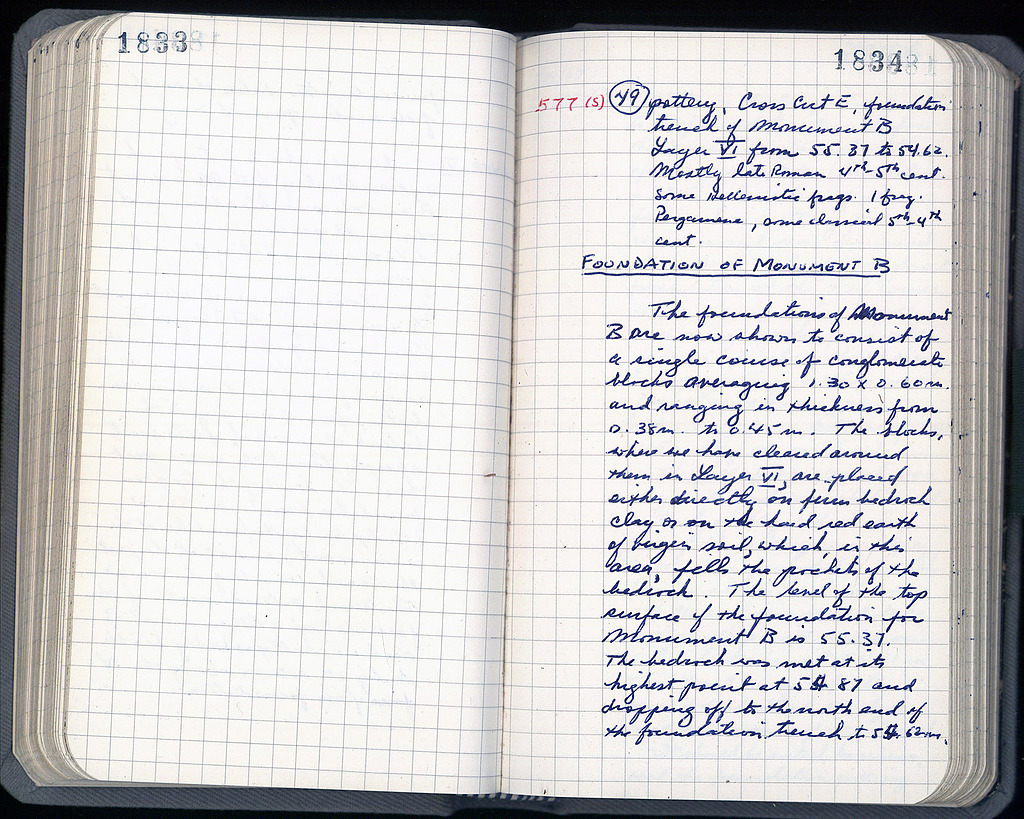 1833
1834
577 (S) 49 pottery, Cross Cut E, foundation
trench of Monument B
Layer VI from 55.37 to 54.62.
Mostly late Roman 4th-5th cent.
Some Hellenistic frags. 1 frag.
Pergamene, some classical 5th-4th
cent.
FOUNDATION OF MONUMENT B
The foundations of Monument
B are now shown to consist of
a single course of conglomerate
blocks averaging 1.30 x 0.60m.
and ranging in thickness from
0.38m. to 0.45m. The blocks,
where we have cleared around
them in Layer VI, are placed
either directly on firm bedrock
clay or on the hard red earth
of virgin soil, which, in this
area, fills the pockets of the
bedrock. The level of the top
surface of the foundation for
Monument B is 55.37.
The bedrock was met at its
highest point at 54.87 and
dropping off to the north end of
the foundation trench to 54.62m.